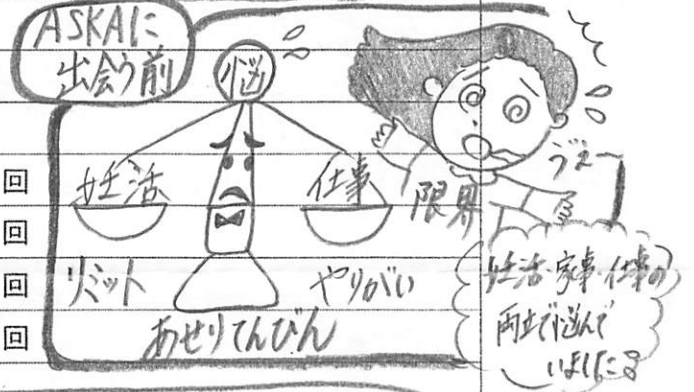 ASKAに
出会う前
悩
妊活
仕事
リミット
やりがい
あせりてんびん
限界
うえー
妊活・家事・仕事の
両立で悩んで
いました
回
回
回
回